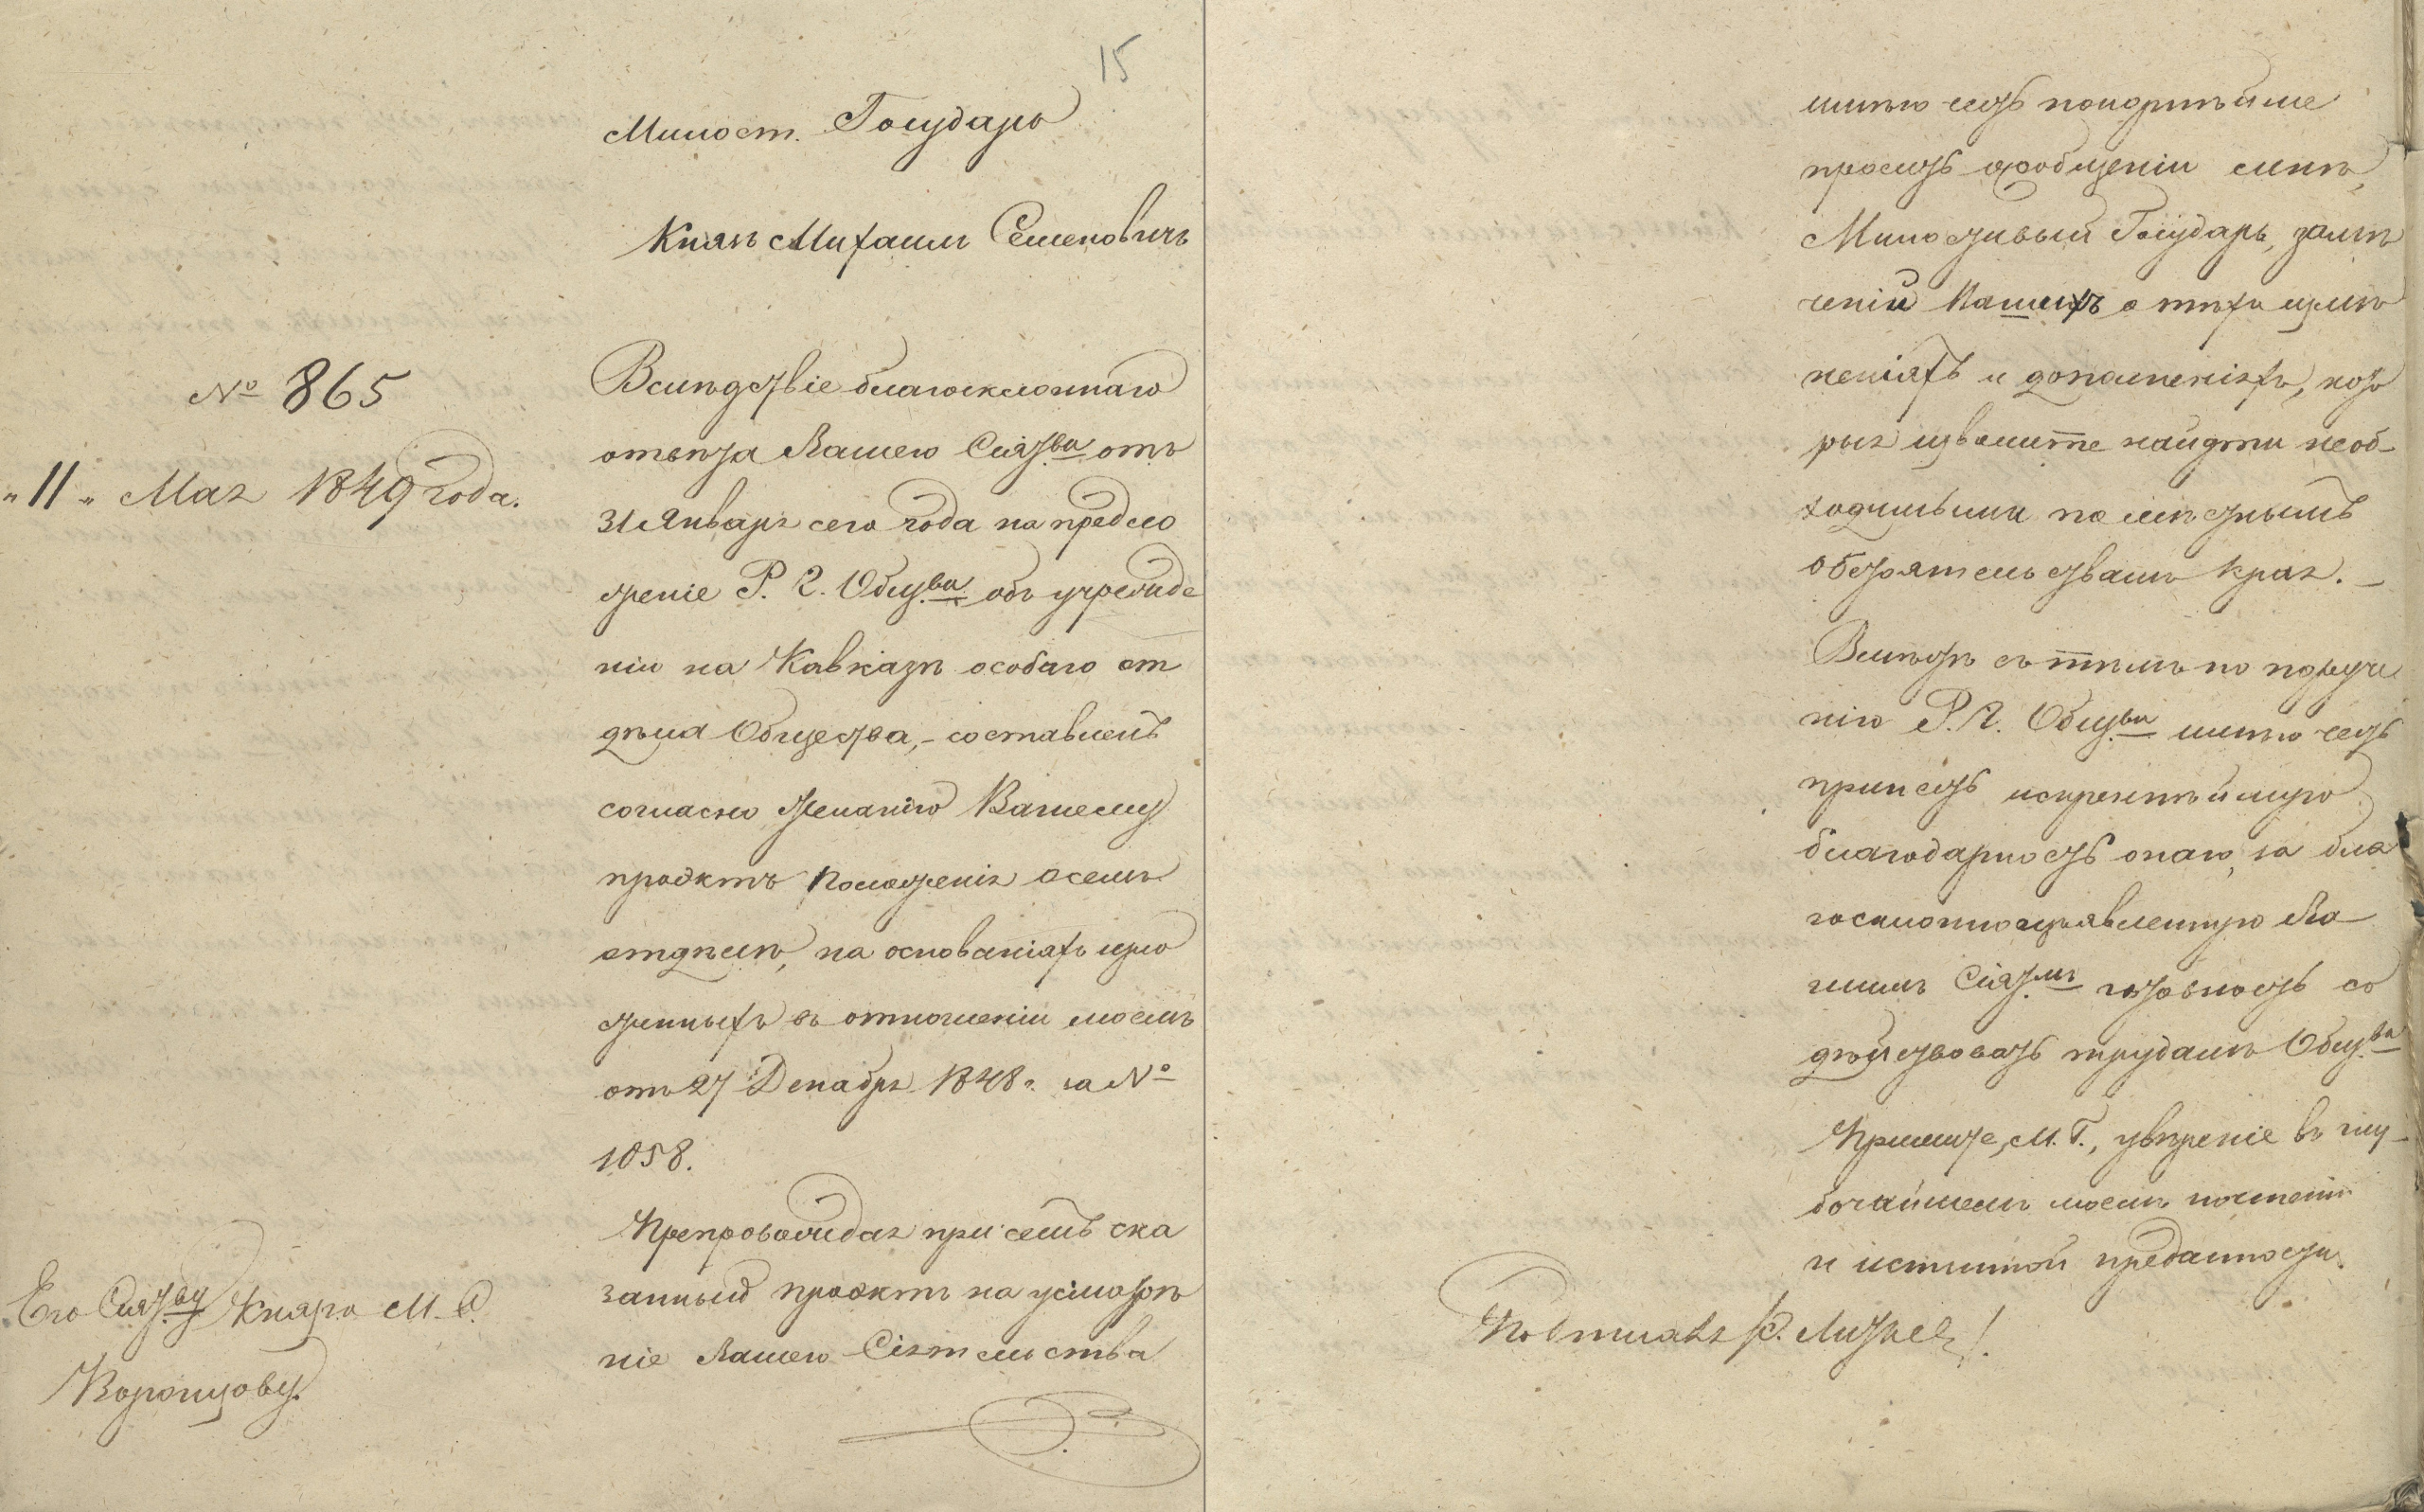 15
Милост. Государь
Князь Михаилъ Семеновичъ
№ 865
"11" Мая 1849 года.
Вслѣдствіе благосклоннаго
отвѣта Вашего Сіят.ва отъ
31 Января сего года на предло
женіе Р. Г. Общ.ва объ учрежде
ніи на Кавказѣ особаго от
дѣла Общества, - составленъ
согласно желанію Вашему
проэктъ Положенія о семъ
отдѣлѣ, на основаніяхъ изло
женныхъ въ отношеніи моемъ
отъ 27 Декабря 1848 г. за №
1058.
Препровождая при семъ ска
занный проэктъ на усмотрѣ
ніе Вашего Сіятельства
Его Сіят.ву Князю М. С.
Воронцову.
имѣю честь покорнѣйше
просить о сообщеніи мнѣ,
Милостивый Государь, замѣ
чаній Вашихъ о тѣхъ измѣ
неніяхъ и дополненіяхъ, кото
рыя изволите найдти необ-
ходимыми по мѣстнымъ
обстоятельствамъ края. -
Вмѣстѣ съ тѣмъ по поруче
нію Р. Г. Общ.ва имѣю честь
принесть искреннѣйшую
благодарность онаго, за бла
госклонно изъявленную Ва-
шимъ Сіят.мъ готовность со
дѣйствовать трудамъ Общ.ва
Примите, М. Г., увѣреніе въ глу-
бочайшемъ моемъ почтеніи
и истинной преданности.
Подписалъ Ѳ. Литке.